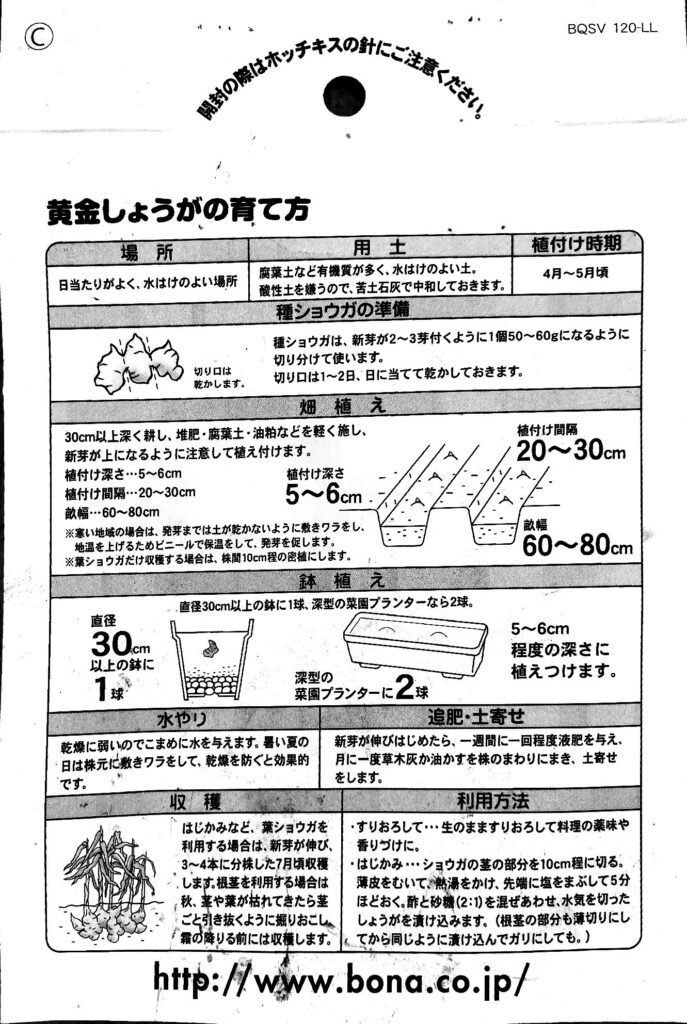 Ⓒ
BQSV 120-LL
開封の際はホッチキスの針にご注意ください。
黄金しょうがの育て方
場所
用土
植付け時期
日当たりがよく、水はけのよい場所
腐葉土など有機質が多く、水はけのよい土。
酸性土を嫌うので、苦土石灰で中和しておきます。
4月〜5月頃
種ショウガの準備
切り口は
乾かします。
種ショウガは、新芽が2〜3芽付くように1個50〜60gになるように
切り分けて使います。
切り口は1〜2日、日に当てて乾かしておきます。
畑植え
30cm以上深く耕し、堆肥・腐葉土・油粕などを軽く施し、
新芽が上になるように注意して植え付けます。
植付け深さ…5〜6cm
植付け間隔…20〜30cm
畝幅…60〜80cm
※寒い地域の場合は、発芽までは土が乾かないように敷きワラをし、
地温を上げるためビニールで保温をして、発芽を促します。
※葉ショウガだけ収穫する場合は、株間10cm程の密植にします。
植付け深さ
5〜6cm
植付け間隔
20〜30cm
畝幅
60〜80cm
鉢植え
直径30cm以上の鉢に1球、深型の菜園プランターなら2球。
直径
30cm
以上の鉢に
1球
深型の
菜園プランターに2球
5〜6cm
程度の深さに
植えつけます。
水やり
乾燥に弱いのでこまめに水を与えます。暑い夏の
日は株元に敷きワラをして、乾燥を防ぐと効果的
です。
追肥・土寄せ
新芽が伸びはじめたら、一週間に一回程度液肥を与え、
月に一度草木灰か油かすを株のまわりにまき、土寄せ
をします。
収穫
はじかみなど、葉ショウガを
利用する場合は、新芽が伸び、
3〜4本に分株した7月頃収穫
します。根茎を利用する場合は
秋、茎や葉が枯れてきたら茎
ごと引き抜くように掘りおこし、
霜の降りる前には収穫します。
利用方法
・すりおろして…生のまますりおろして料理の薬味や
香りづけに。
・はじかみ…ショウガの茎の部分を10cm程に切る。
薄皮をむいて、熱湯をかけ、先端に塩をまぶして5分
ほどおく。酢と砂糖(2:1)を混ぜあわせ、水気を切った
しょうがを漬け込みます。(根茎の部分も薄切りにし
てから同じように漬け込んでガリにしても。)
http://www.bona.co.jp/